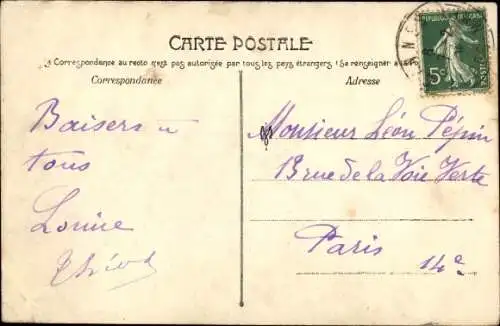 CARTE POSTALE
Correspondance au recto n'est pas autorisée par tous les pays étrangers (Se renseigner à la
Correspondance
Adresse
RÉPUBLIQUE FRANÇAISE
5c
POSTES
Baisers à
tous
Louise
Monsieur Léon Pépin
13 rue de la Voie Verte
Paris
14e